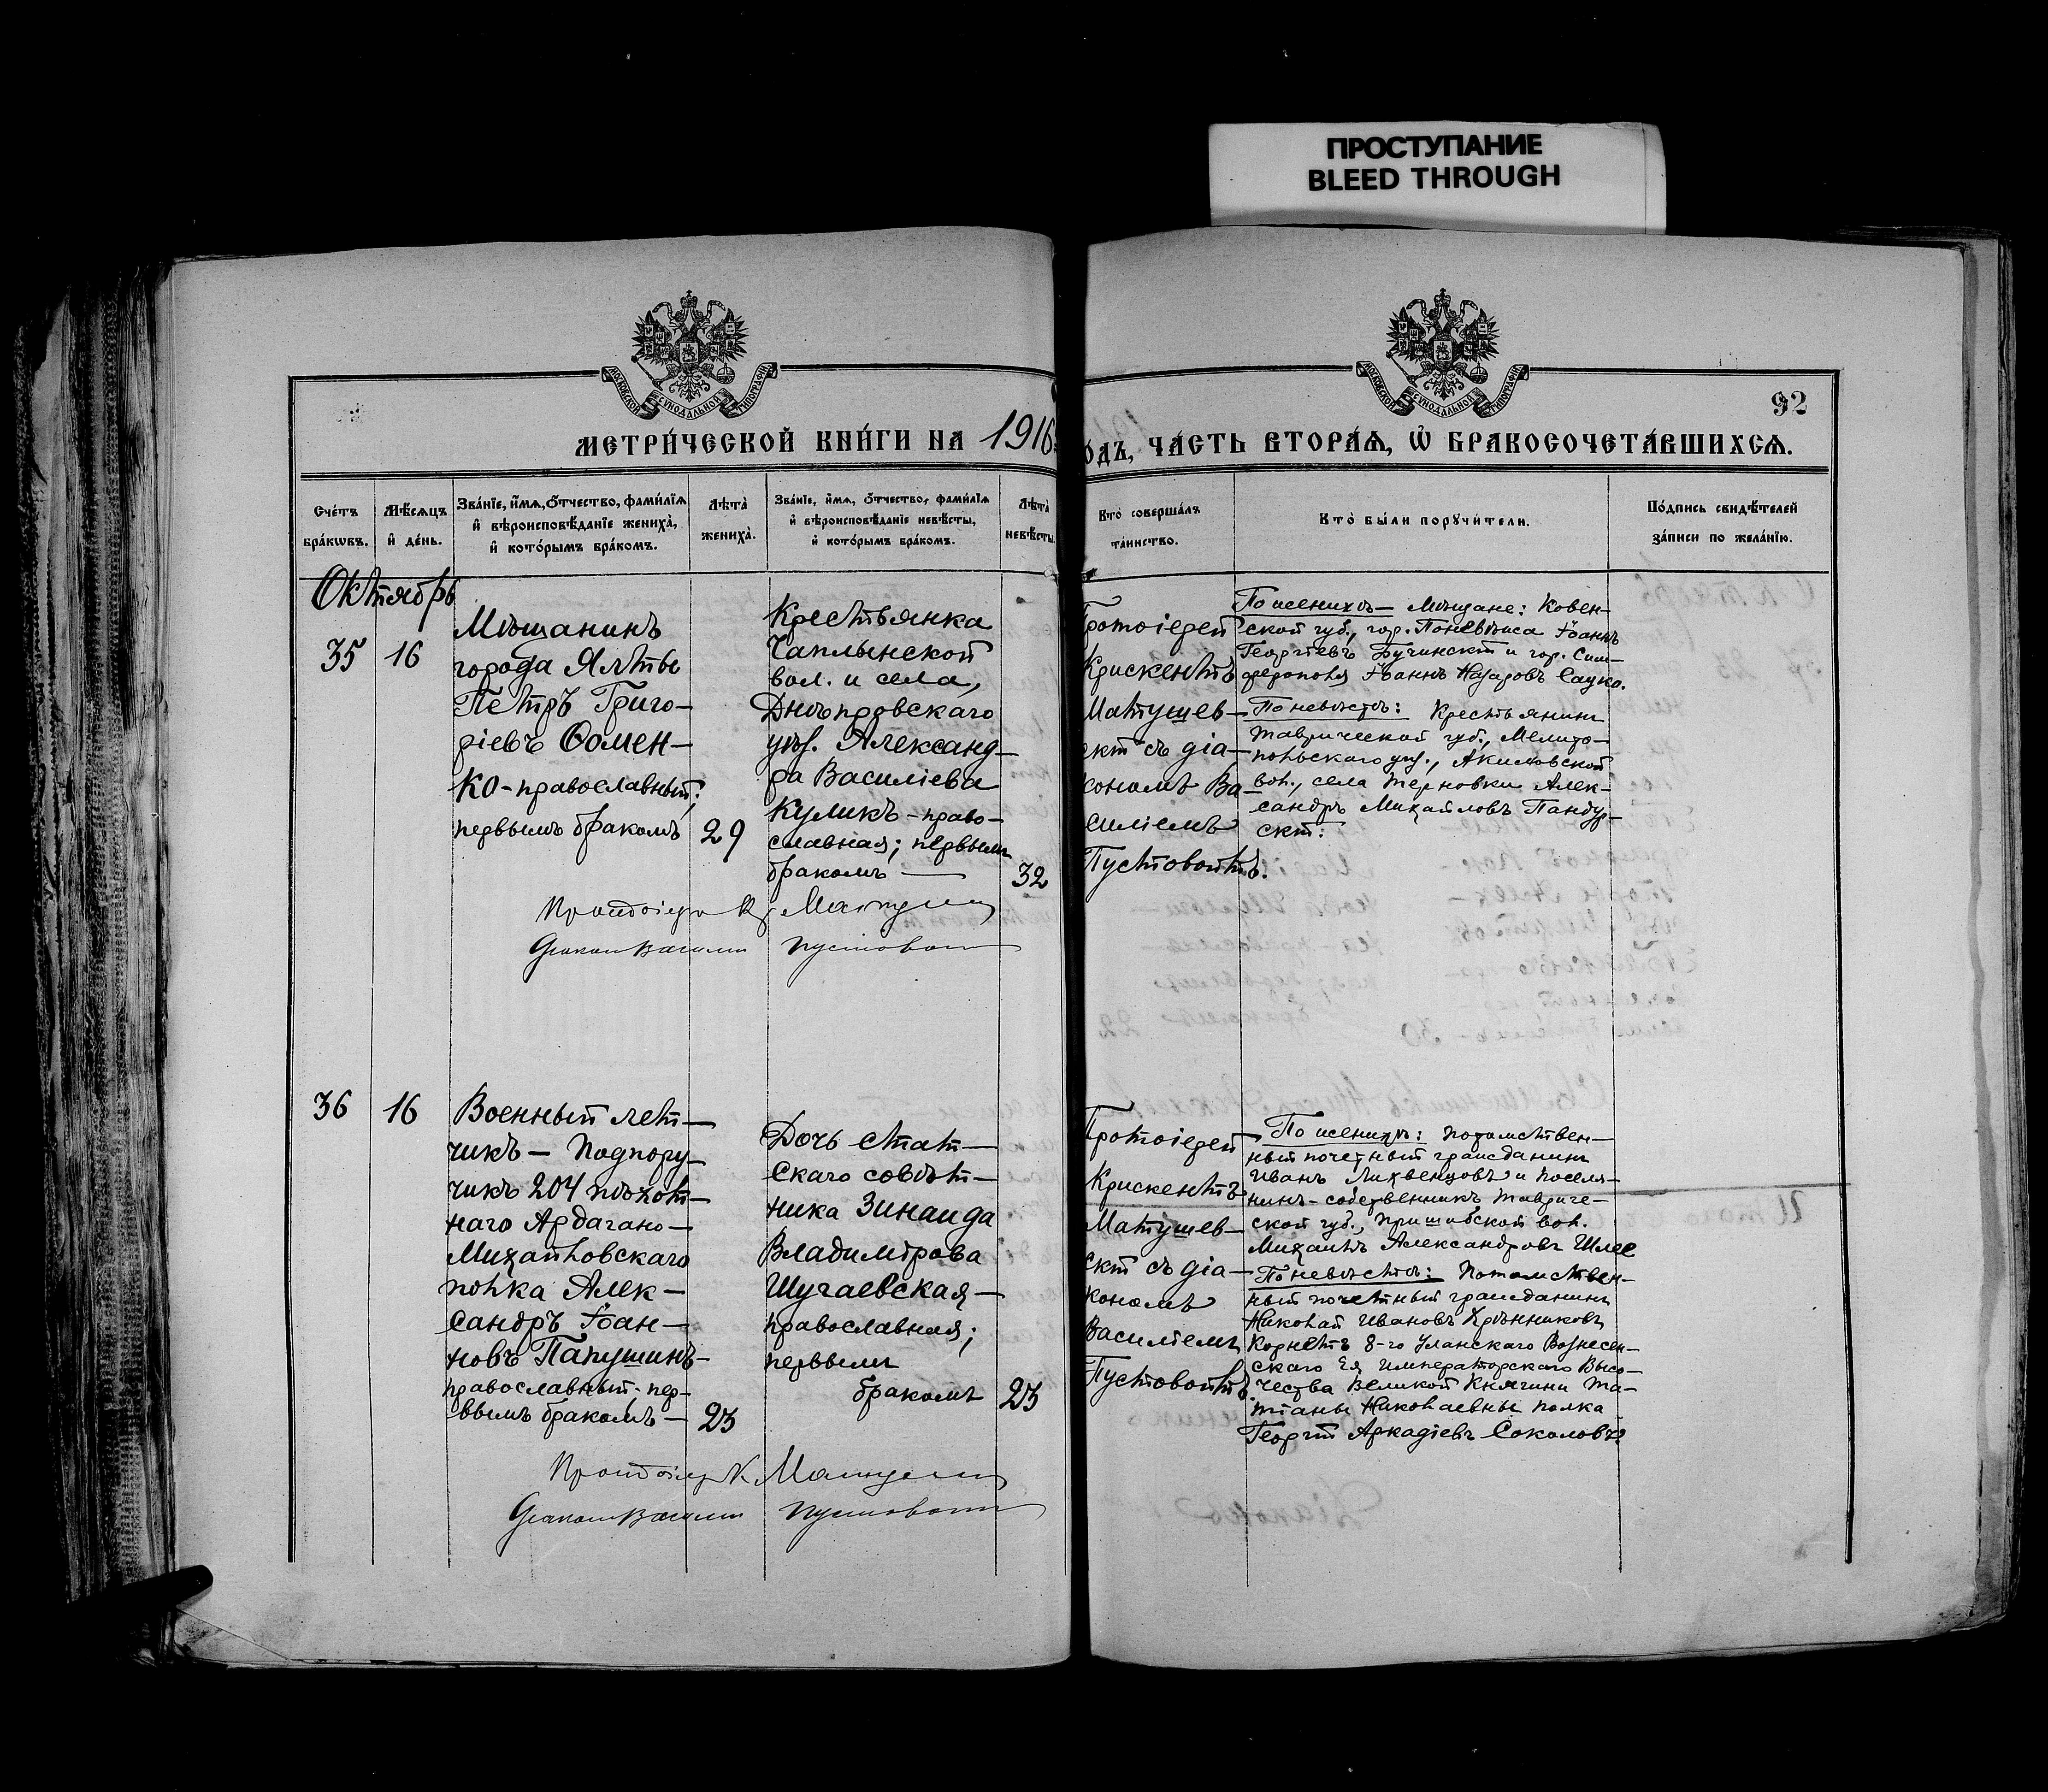 ПРОСТУПАНИЕ
BLEED THROUGH
МОСКОВСКОЙ СѴНОДАЛЬНОЙ ТИПОГРАФІИ
МОСКОВСКОЙ СѴНОДАЛЬНОЙ ТИПОГРАФІИ
92
МЕТРИ́ЧЕСКОЙ КНИ́ГИ НА 1916
ОДЪ, ЧА́СТЬ ВТОРА́Ѧ, Ѡ҆ БРАКОСОЧЕТА́ВШИХСѦ.
Сче́тъ бра́кѡвъ.
Мѣ́сѧцъ и҆ де́нь.
Зва́нїе, и҆́мѧ, ѻ҆́тчество, фами́лїѧ и҆ вѣроисповѣ́данїе жениха̀, и҆ кото́рымъ бра́комъ.
Лѣта̀ жениха̀.
Зва́нїе, и҆́мѧ, ѻ҆́тчество, фами́лїѧ и҆ вѣроисповѣ́данїе невѣ́сты, и҆ кото́рымъ бра́комъ.
Лѣта̀ невѣ́сты.
Кто̀ соверша́лъ та́инство.
Кто̀ бы́ли порꙋчи́тели.
По́дпись свидѣ́телей за́писи по жела́нїю.
Октябрь
35
16
Мѣщанинъ
города Ялты
Петръ Григо-
ріевъ Ѳомен-
ко-православный;
первымъ бракомъ
29
Крестьянка
Чаплынской
вол. и села,
Днѣпровскаго
уѣз. Александ-
ра Василіева
Куликъ-право-
славная; первымъ
бракомъ —
32
Протоіерей
Крискентъ
Матушев-
скій съ діа-
кономъ Ва-
силіемъ
Пустовойтъ.
По женихѣ — Мѣщане: Ковен-
ской губ., гор. Поневѣжа Іоаннъ
Георгіевъ Бучинскій и гор. Сим-
ферополя Іоаннъ Назаровъ Сацко.
По невѣстѣ: Крестьянинъ
Таврической губ., Мелито-
польскаго уѣз., Акимовской
вол., села Терновки Алек-
сандръ Михайловъ Пандур-
скій:
Протоіерей Кр. Матуш
Діаконъ Василій Пустовойт
36
16
Военный лет-
чикъ — Подпору-
чикъ 204 пѣхот-
наго Ардагано-
Михайловскаго
полка Алек-
сандръ Іоан-
новъ Папушинъ-
православный; пер-
вымъ бракомъ —
23
Дочь стат-
скаго совѣт-
ника Зинаида
Владимірова
Шугаевская —
православная;
первымъ
бракомъ
23
Протоіерей
Крискентъ
Матушев-
скій съ діа-
кономъ
Василіемъ
Пустовойтъ
По женихѣ: потомствен-
ный почетный гражданинъ
Иванъ Лихвенцовъ и поселя-
нинъ-собственникъ Тавриче-
ской губ., Пришибской вол.
Михаилъ Александровъ Шлее
По невѣстѣ: Потомствен-
ный почетный гражданинъ
Николай Ивановъ Хрѣнниковъ
Корнетъ 8-го Уланскаго Вознесен-
скаго Ея Императорскаго Высо-
чества Великой Княгини Та-
тіаны Николаевны полка
Георгій Аркадіевъ Соколовъ.
Протоіерей К. Матуш
Діаконъ Василій Пустовойт